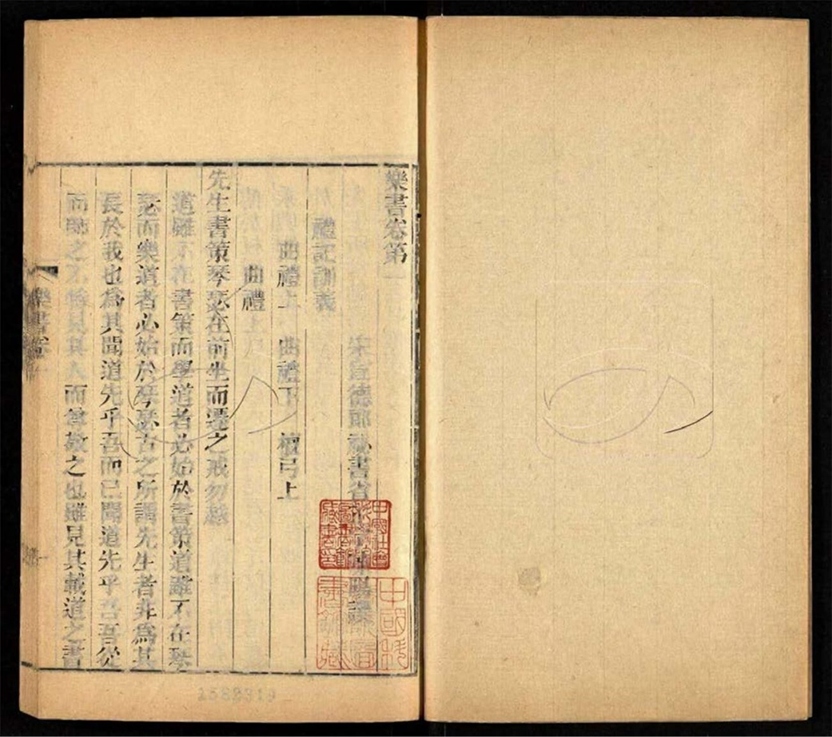 樂書卷第一
宋宣德郎祕書省正字陳暘譔
禮記訓義
曲禮上 曲禮下 檀弓上
曲禮
先生書策琴瑟在前坐而遷之戒勿越
道雖不在書策而學道者必始於書策道雖不在琴
瑟而樂道者必始於琴瑟古之所謂先生者非為其
長於我也為其聞道先乎吾而已聞道先乎吾吾從
而師之不惟見其人而尊敬之也雖見其載道之書
樂書卷一
1588319